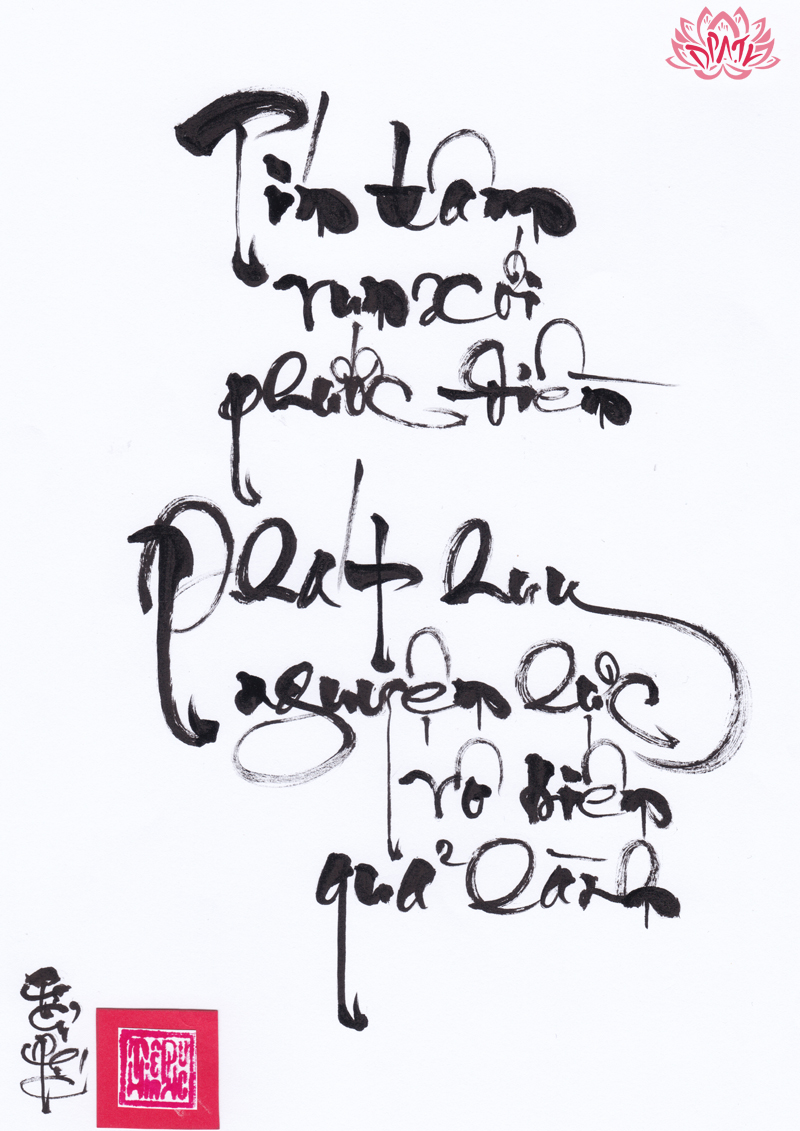 Tín tâm
vun xới
phước điền
Phát huy
nguyện lực
vô biên
quả lành